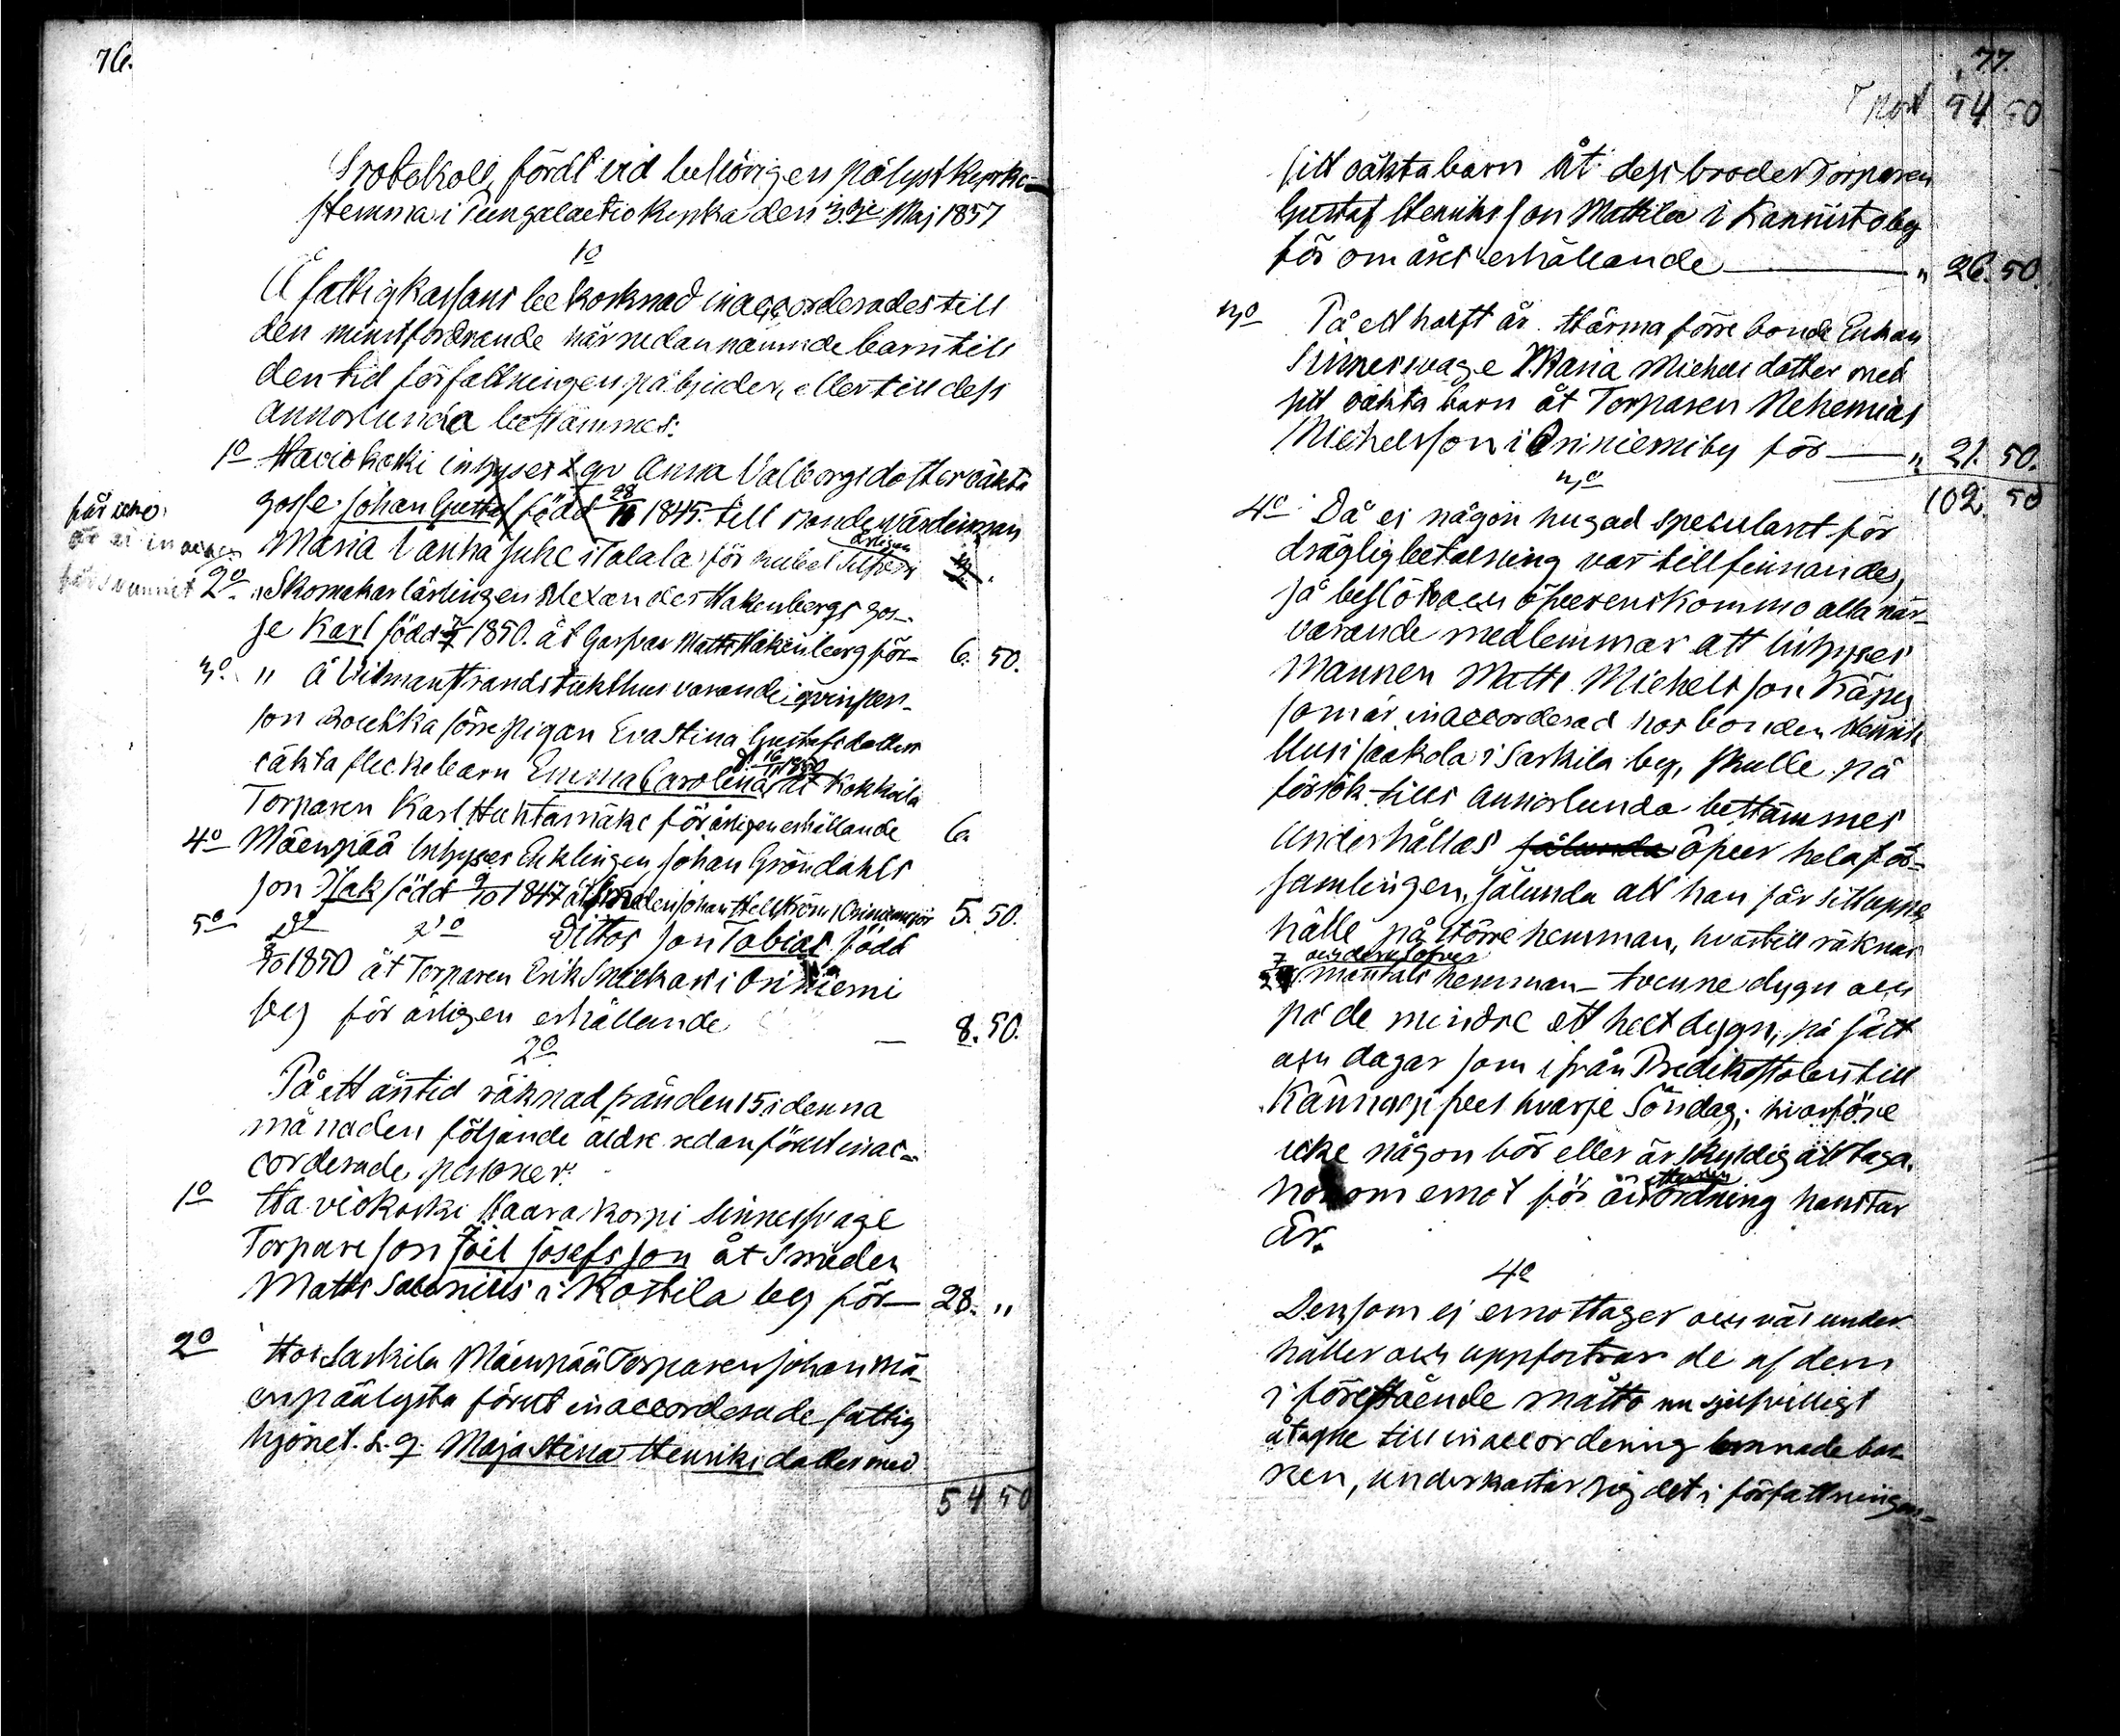 76.
Protokoll, fördt vid behörigen pålyst kyrko-
stemma i Pungalaitio kyrka den 3.je Maj 1857
1o
Å fattigkassans bekostnad inaccorderades till
den minstfordrande här nedannämnde barn till
den tid författningen påbjuder, eller till dess
annorlunda bestämmes:
1o Haviokoski inhyses L. qv Anna Valborgsdotter oäkta
gosse Johan Gustaf född 28/10 1845. till Bonde värdinnan
Maria Vänha Juhe i Talala för årligen
2o Skomakarlärlingen Alexander Hakenbergs gos-
se Karl född 1850. åt Gaspar Matts Hakenberg för 6. 50.
3o " Å Vilmanstrands tukthus varande qvinsper-
son förre pigan Eva Stina Gustafsdotters
oäkta flickebarn Emma Carolina åt Kokkila
Torparen Karl Huhtamäke för årligen erhållande 6.
4o Mäenpää Inhyses Enklingen Johan Gröndahls
son Isak född 9/10 1847 åt Johan Hellström i Oriniemi för 5. 50.
5o do do Dittos son Tobias född
8/10 1850 åt Torparen Erik Snickari i Oriniemi
by för årligen erhållande — 8. 50.
2o
På ett års tid räknad från den 15 i denna
månaden följande äldre redan förut inac-
corderade personer:
1o Haviokoski Haarakorpi Sinnessvage
Torpare son Joel Josefsson åt Smeden
Matts Salenius i Kostila by för — 28. "
2o Hos Sarkila Mäenpää Torparen Johan Mä-
enpää lysta förut inaccorderade fattig
hjonet L. q. Maja Stina Henriksdotter med
54 50
77.
Tport 54 50
sitt oäkta barn åt dess broder Torparen
Gustaf Henriksson Mattila i Kannisto by
för om året erhållande — " 26. 50.
3o På ett halft år Härma förre bonde Enkan
Sinnessvage Maria Michelsdotter med
sitt oäkta barn åt Torparen Nehemias
Michelsson i Oriniemi by för — " 21. 50.
3o 102. 50
4o Då ej någon hugad speculant för
dräglig betalning var tillfinnandes,
så beslöto och öfverenskommo alla när-
varande medlemmar att Inhyses
mannen Matts Michelsson Käpy
som är inaccorderad hos bonden Henrik
Uusi Jaakola i Sarkila by, skulle på
försök tills annorlunda bestämmes
underhållas sålunda öfver hela för-
samlingen, sålunda att han får sitt uppe
hälle på större hemman, hvartill räknas
7/24 och deröfver mantals hemman — tvenne dygn och
på de mindre ett helt dygn, på sätt
och dagar som ifrån Predikstolen till
kännagifves hvarje Söndag; hvarföre
icke någon bör eller är skyldig att taga
honom emot för än ordning hanstar
är.
4o
Den som ej emottager och väl under
håller och uppfostrar de af dem
i föreståënde måtto nu sjelfvilligt
åtagne till inaccordering lemnade bar-
nen, underkastar sig det i författningar-